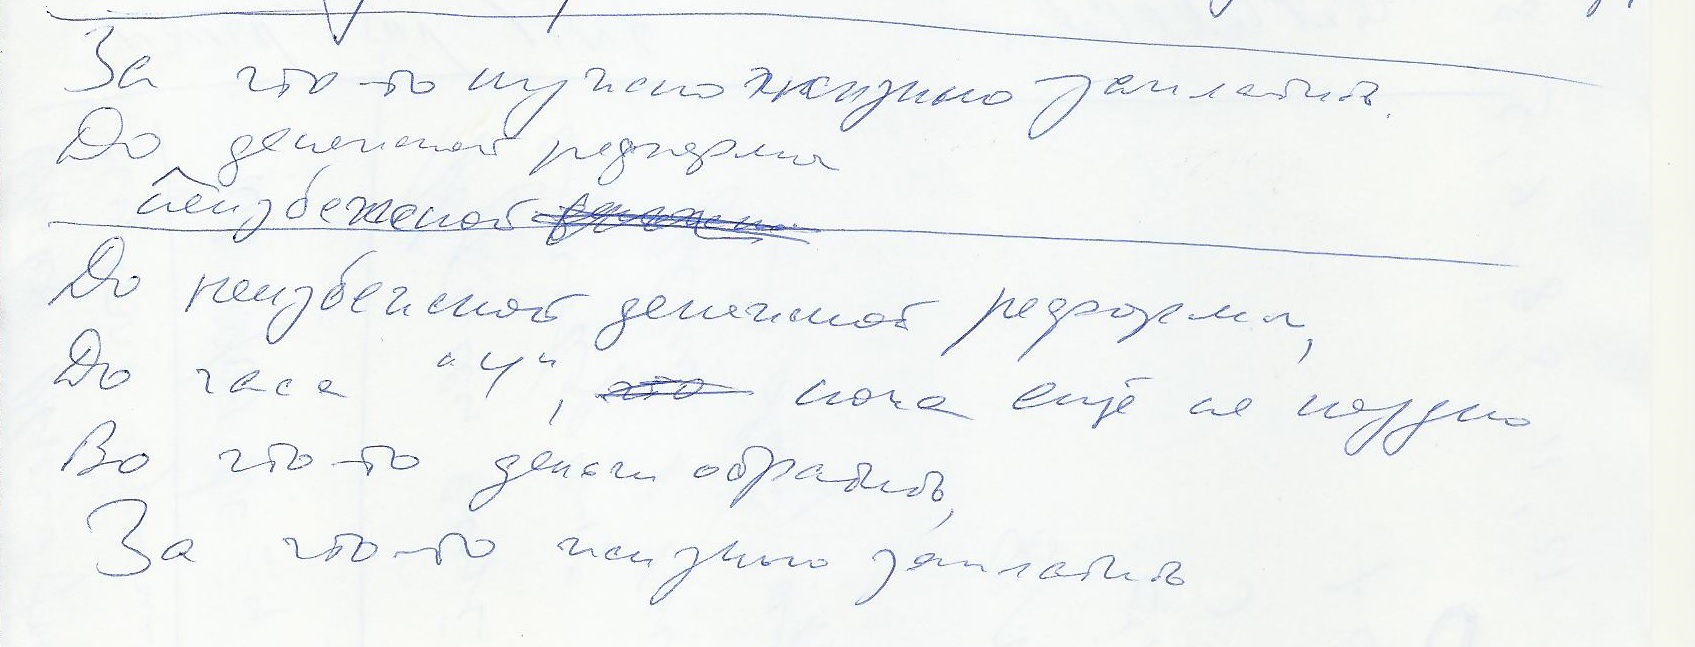 За что-то нужно жизнью заплатить.
До денежной реформы
неизбежной
До неизбежной денежной реформы,
До часа "Ч", пока ещё не поздно
Во что-то деньги обратить,
За что-то жизнью заплатить